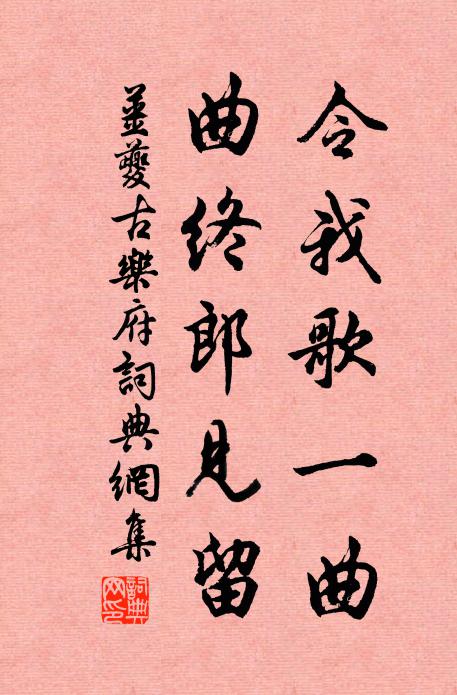 令我歌一曲
曲终郎見留
姜夔古樂府詞典網集
詞典網印